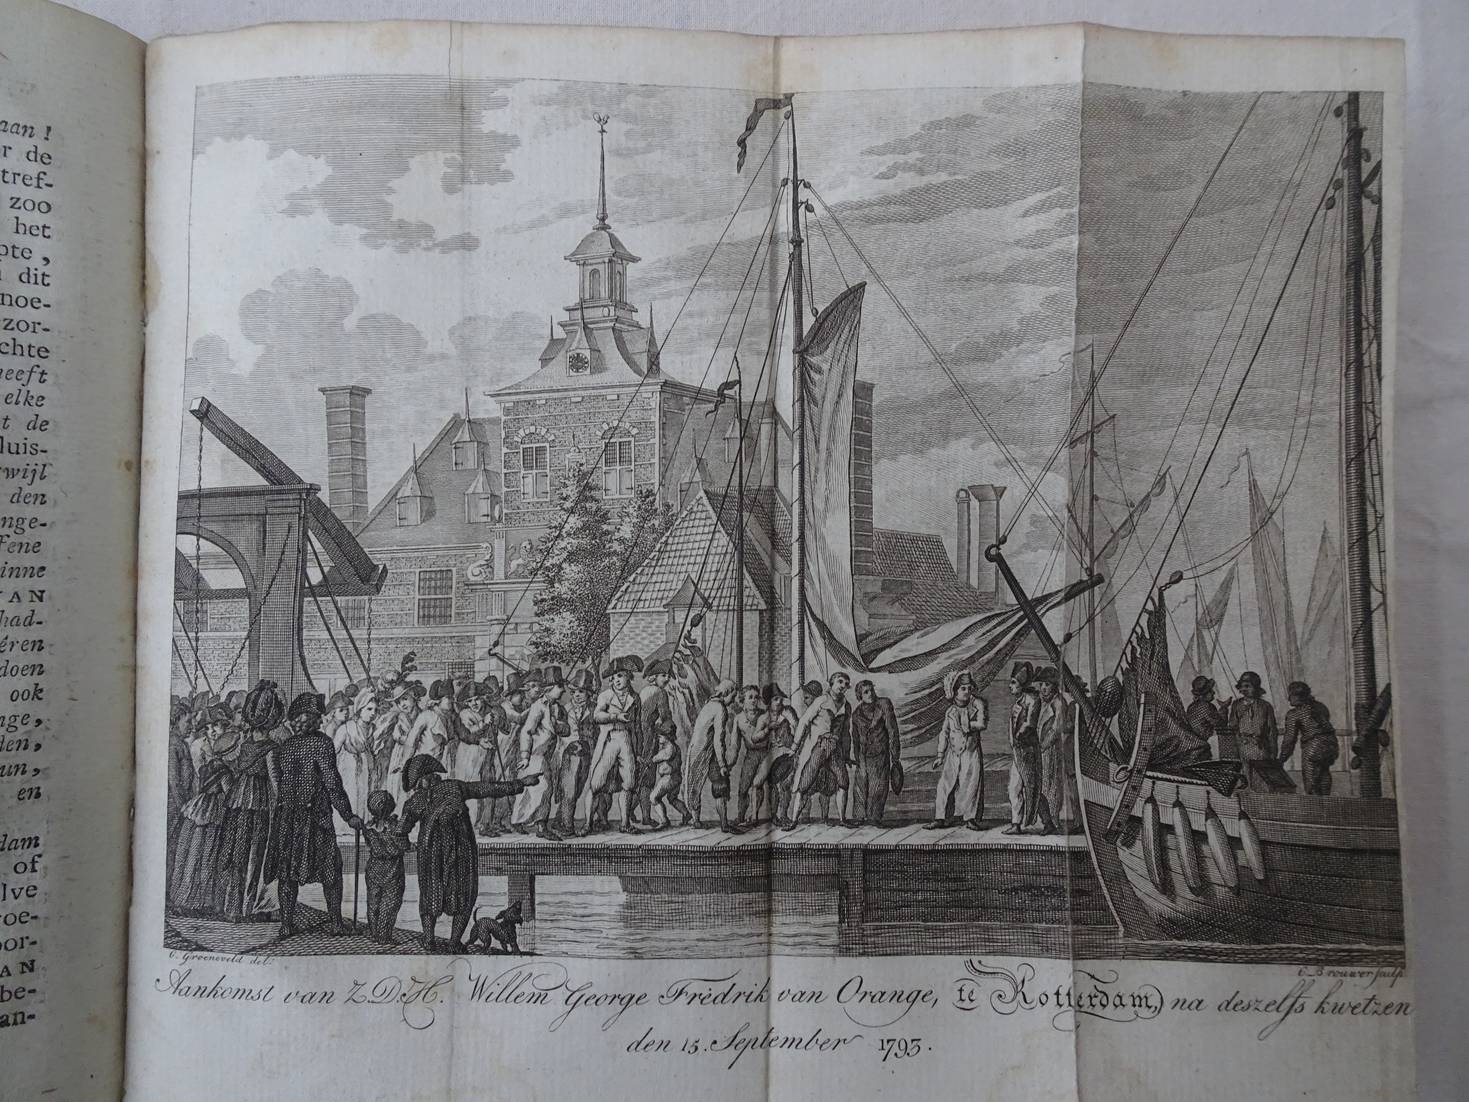 aan!
r de
tref-
zoo
het
pte,
dit
noe-
zor-
chte
heeft
elke
t de
luis-
wijl
den
nge-
fene
inne
VAN
had-
éren
doen
ook
nge,
den,
un,
en
dam
of
lve
roe-
oor-
AN
be-
an-
G. Groeneveld del:
C. Brouwer sculp
Aankomst van Z.D.H. Willem George Frédrik van Orange, te Rotterdam, na deszelfs kwetzen
den 15. September 1793.